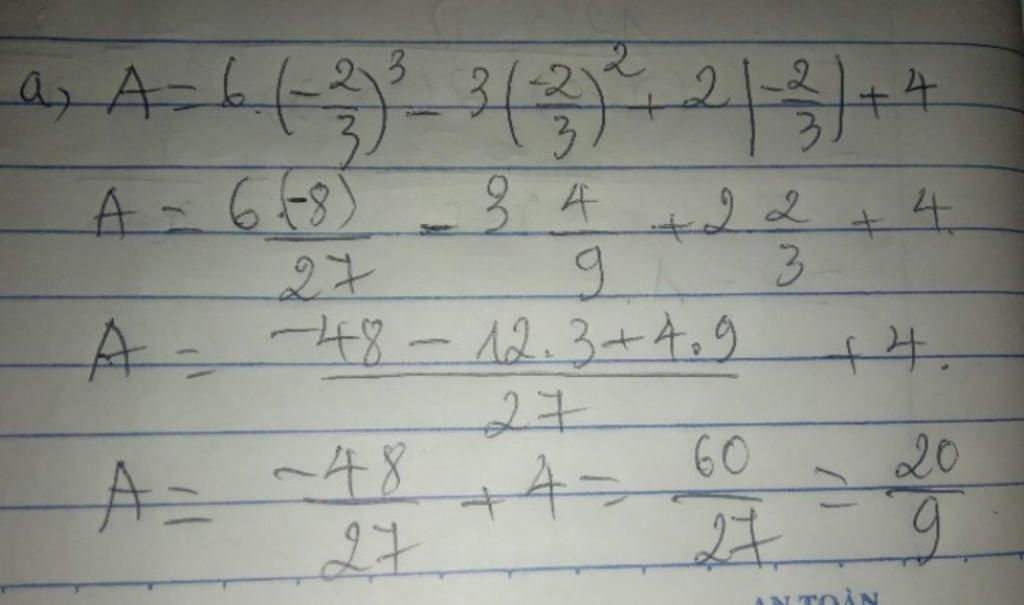 a, A = 6.(-2/3)^3 - 3(-2/3)^2 + 2|-2/3| + 4
A = 6.(-8)/27 - 3 4/9 + 2 2/3 + 4.
A = (-48 - 12.3 + 4.9)/27 + 4.
A = -48/27 + 4 = 60/27 = 20/9
AN TOÀN